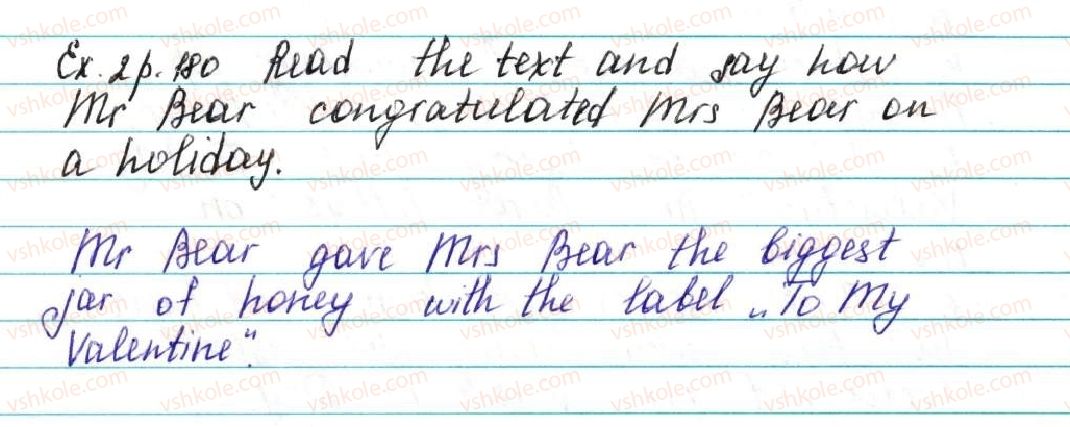 Ex. 2 p. 180 Read the text and say how
Mr Bear congratulated Mrs Bear on
a holiday.
Mr Bear gave Mrs Bear the biggest
jar of honey with the label „To My
Valentine“.